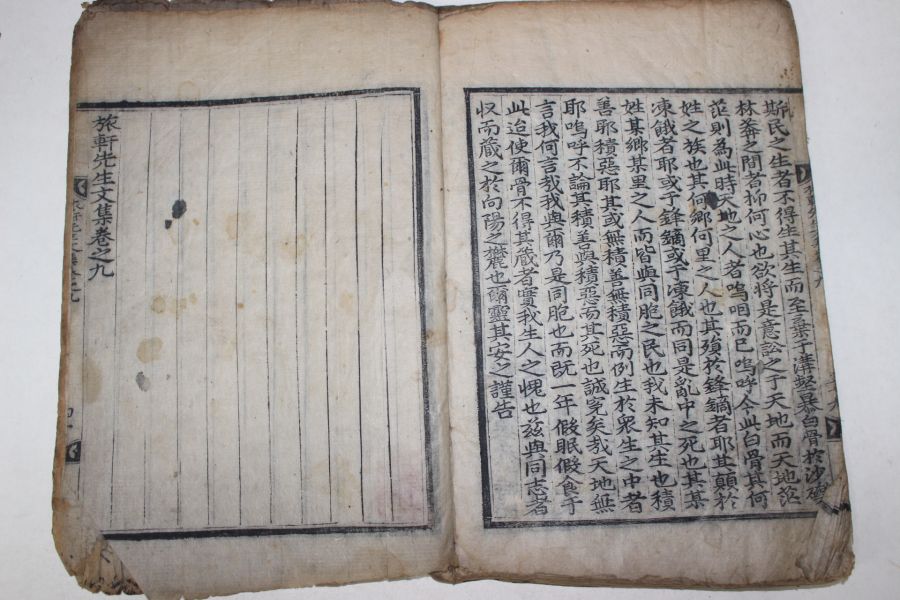 斯民之生者不得生其生而至棄于溝壑暴白骨於沙
林莽之間者抑何心也欲將是意訟之于天地而天地茫
茫則為此時天地之人者嗚咽而已嗚呼今此白骨其何
姓之族也其何鄕何里之人也其殞於鋒鏑者耶其顚於
凍餓者耶或于鋒鏑或于凍餓而同是亂中之死也其某
姓某鄕某里之人而皆與同胞之民也我未知其生也積
善耶積惡耶其或無積善無積惡而例生於衆生之中者
耶嗚呼不論其積善與積惡而其死也誠寃矣我天地無
言我何言哉我與爾乃是同胞也而旣一年假眠假食于
此迨使爾骨不得其藏者實我生人之愧也玆與同志者
収而藏之於向陽之麓也爾靈其安之謹告
旅軒先生文集卷之九